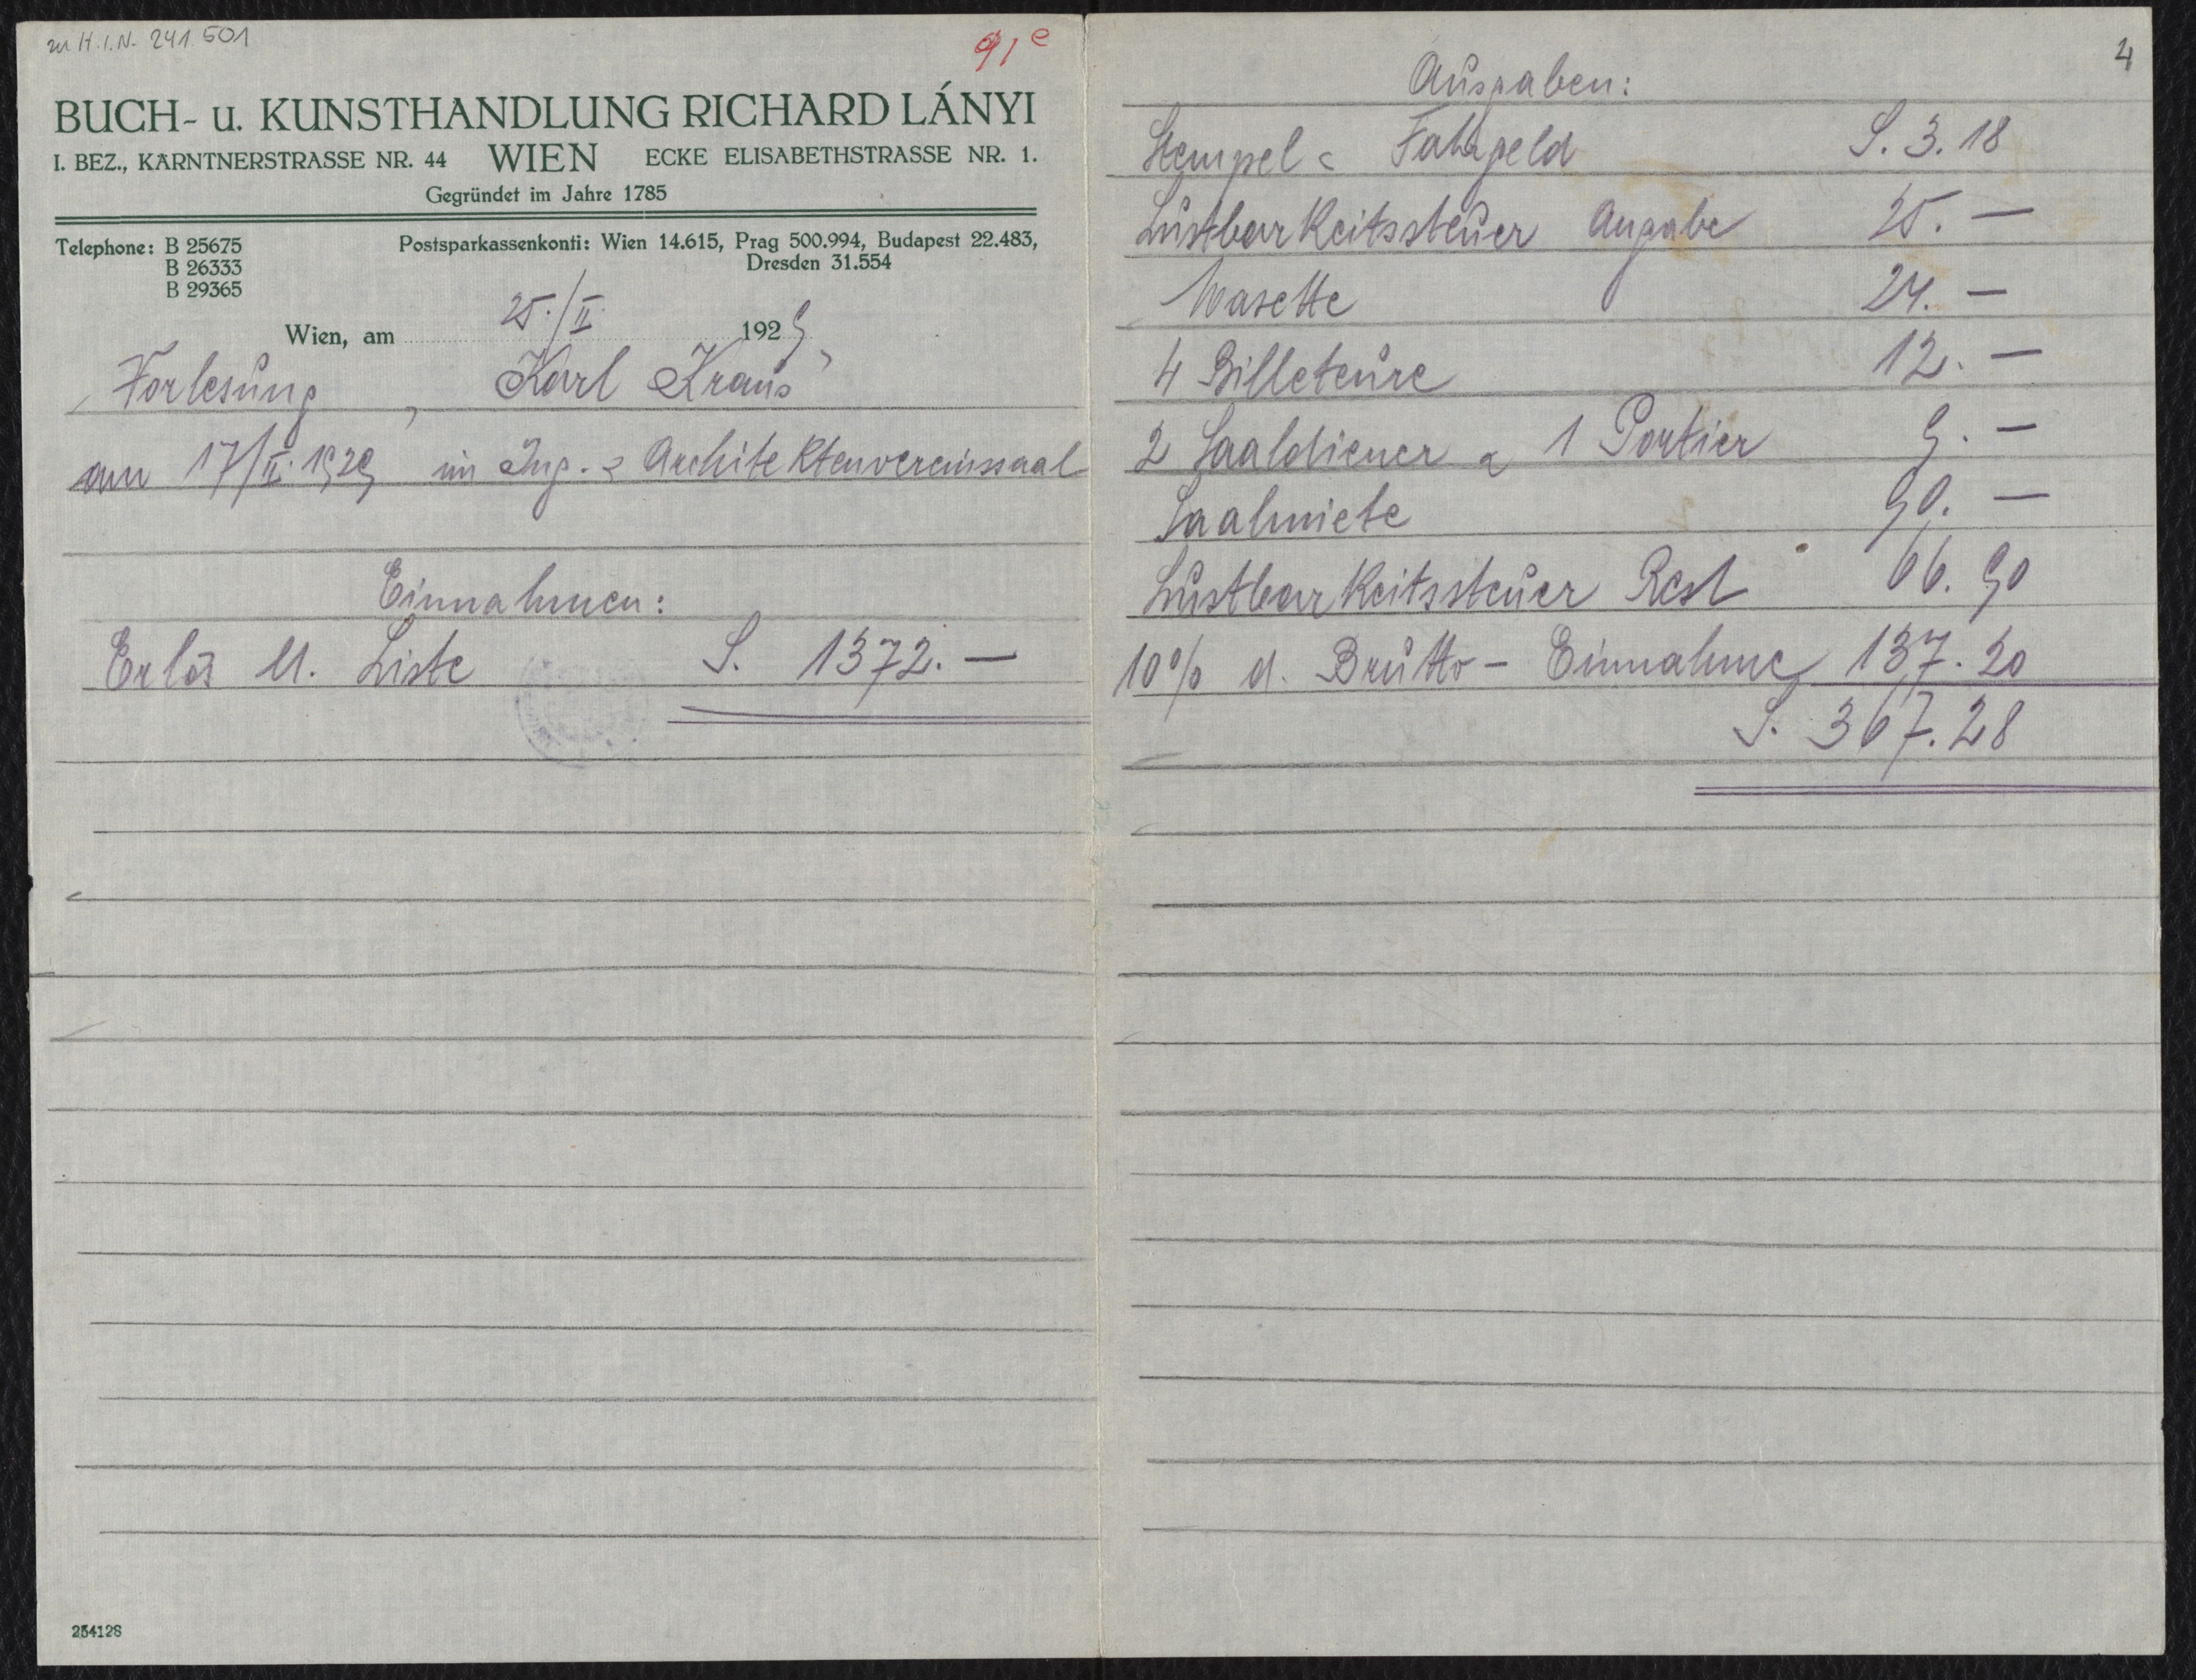 zu H.I.N. 241.501
91e
BUCH- u. KUNSTHANDLUNG RICHARD LÁNYI
I. BEZ., KÄRNTNERSTRASSE NR. 44 WIEN ECKE ELISABETHSTRASSE NR. 1.
Gegründet im Jahre 1785
Telephone: B 25675
B 26333
B 29365
Postsparkassenkonti: Wien 14.615, Prag 500.994, Budapest 22.483,
Dresden 31.554
Wien, am 25./II. 1929
Vorlesung, Karl Kraus
am 17/II. 1929 im Ing. & Architektenvereinssaal
Einnahmen:
Erlös lt. Liste S. 1372.—
254128
4
Ausgaben:
Stempel & Fahrgeld S. 3.18
Lustbarkeitssteuer Angabe 25.—
Wasette 24.—
4 Billeteure 12.—
2 Saaldiener & 1 Portier 9.—
Saalmiete 90.—
Lustbarkeitssteuer Rest 66.90
10% d. Brutto-Einnahme 137.20
S. 367.28